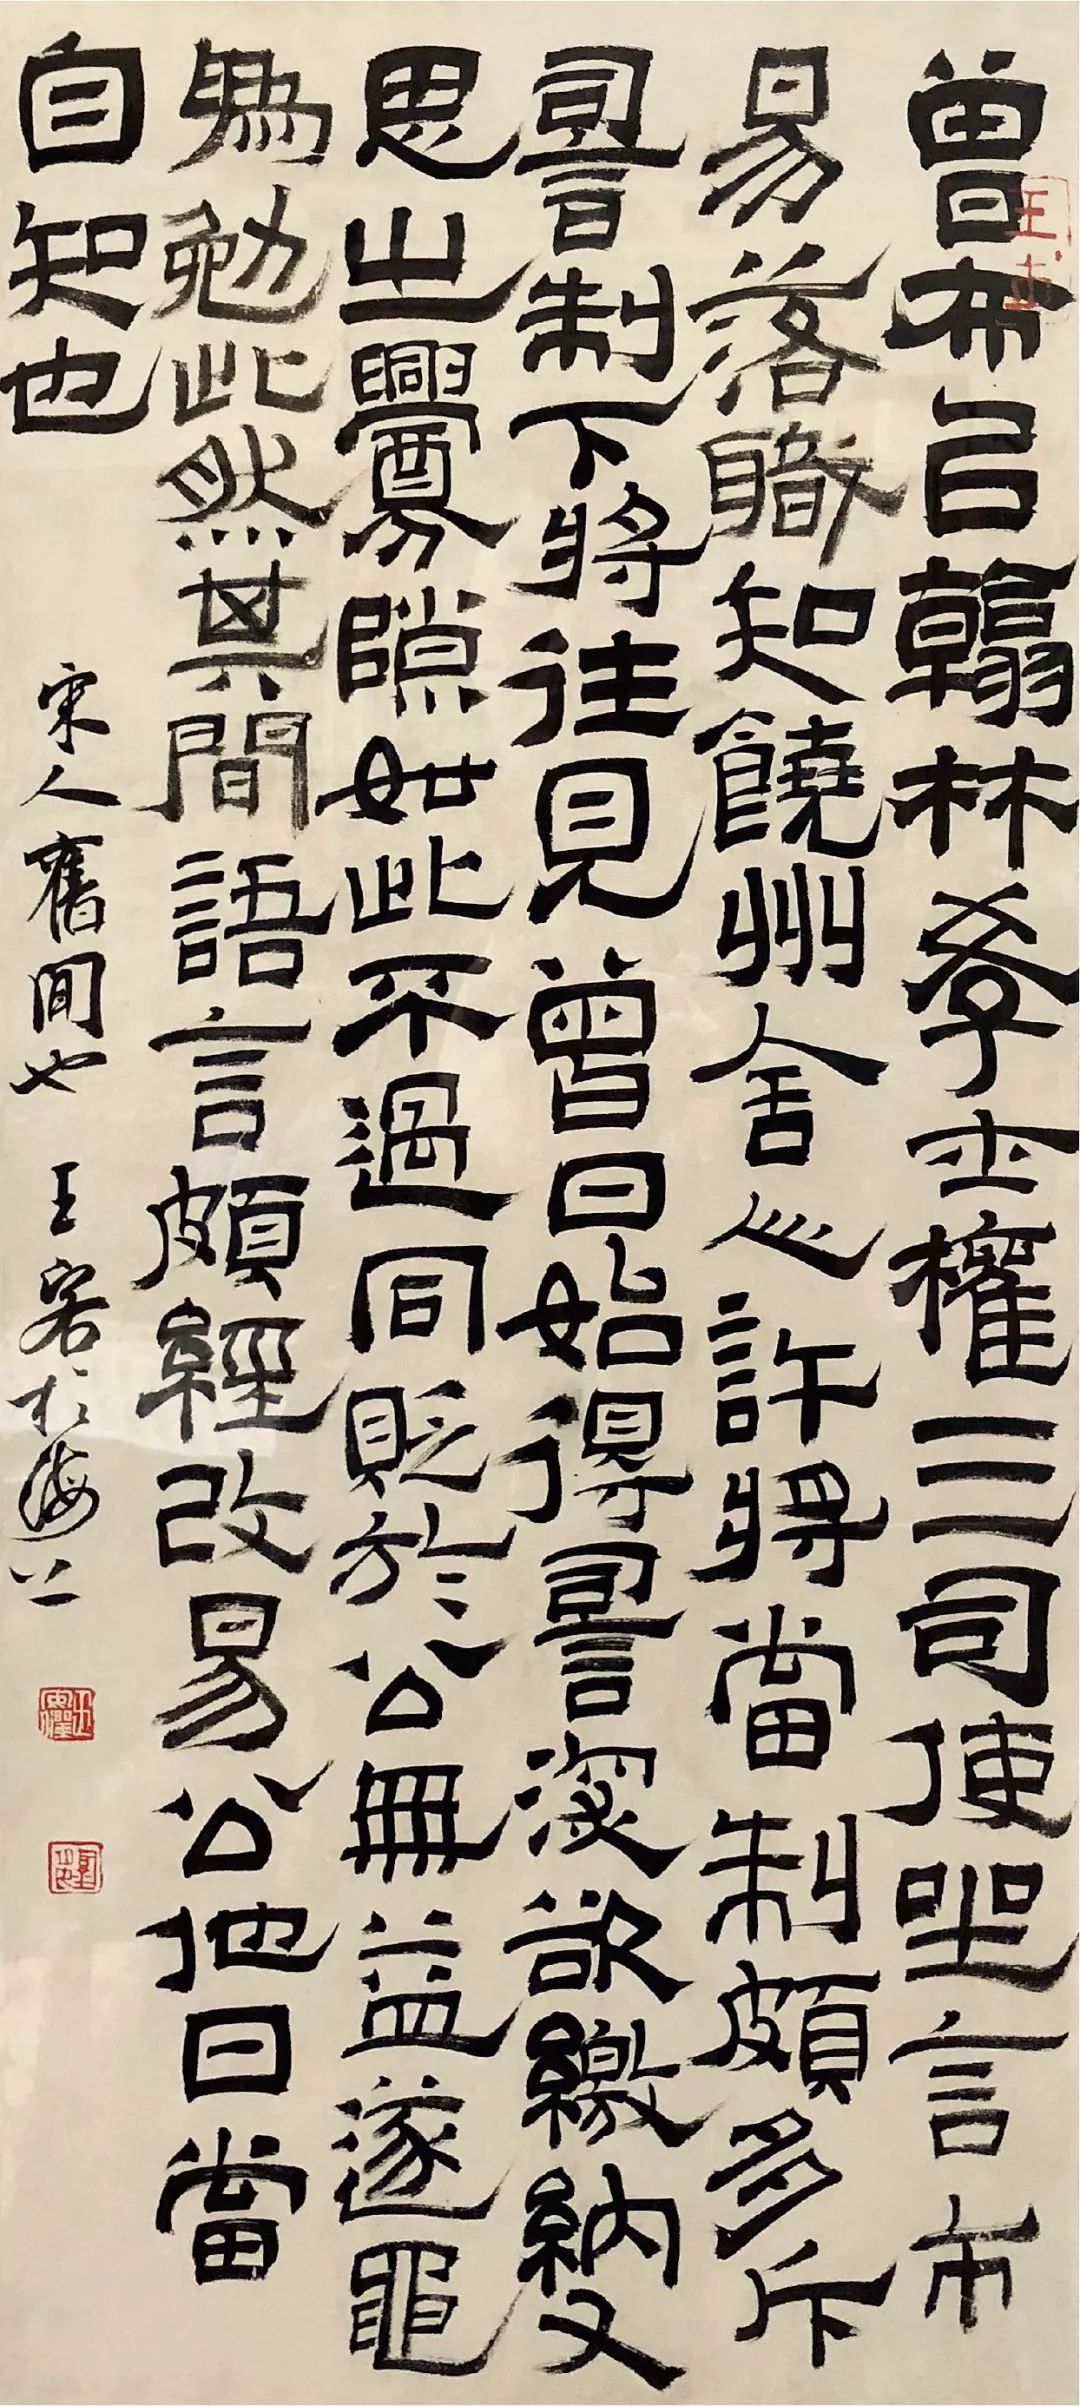 曾布㠯翰林學士權三司使坐言市
易落職知饒州舍人許將當制頗多斥
詞制下將往見曾曰始得詞深欲繳納又
思之釁隙如此不過同貶於公無益遂黽
為勉此然其間語言頗經改易公他日當
自知也
宋人舊聞也 王客於海上